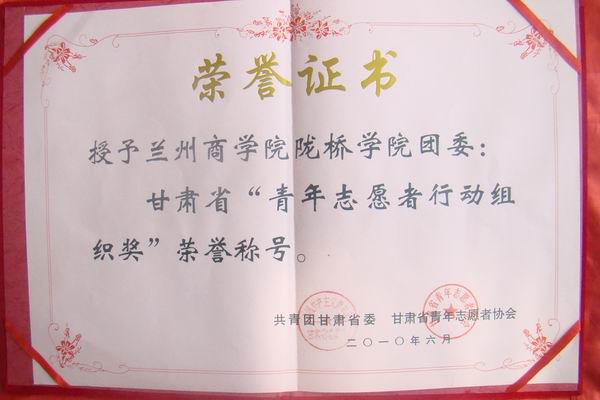 荣誉证书
授予兰州商学院陇桥学院团委：
甘肃省“青年志愿者行动组
织奖”荣誉称号。
共青团甘肃省委 甘肃省青年志愿者协会
二〇一〇年六月